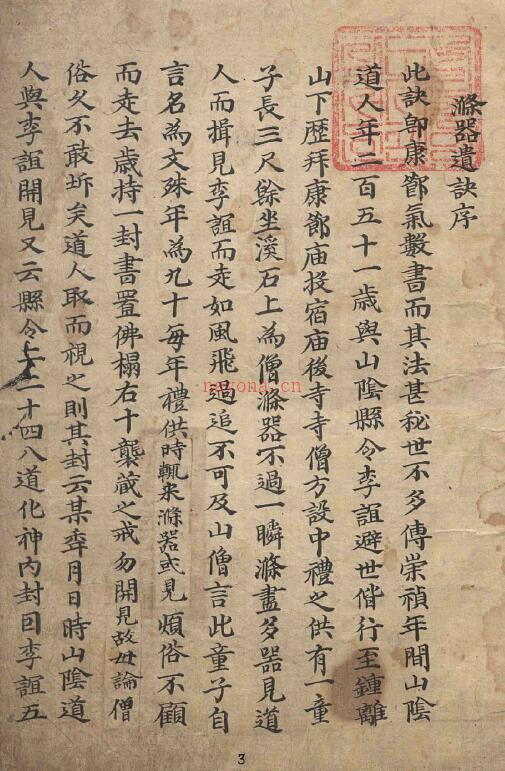 滌器遺訣序
此訣卽康節氣數書而其法甚秘世不多傳崇禎年間山陰
道人年二百五十一歲與山陰縣令李誼避世偕行至鍾離
山下歷拜康節庙投宿庙後寺寺僧方設中禮之供有一童
子長三尺餘坐溪石上為僧滌器不過一瞬滌盡多器見道
人而揖見李誼而走如風飛過追不可及山僧言此童子自
言名為文殊年為九十每年禮供時輒來滌器或見煩俗不顧
而走去歲持一封書置佛榻右十襲藏之戒勿開見故毋論僧
俗久不敢坼矣道人取而視之則其封云某年月日時山陰道
人與李誼開見又云縣令上二十四八道化神內封曰李誼五
nayona.cn
3